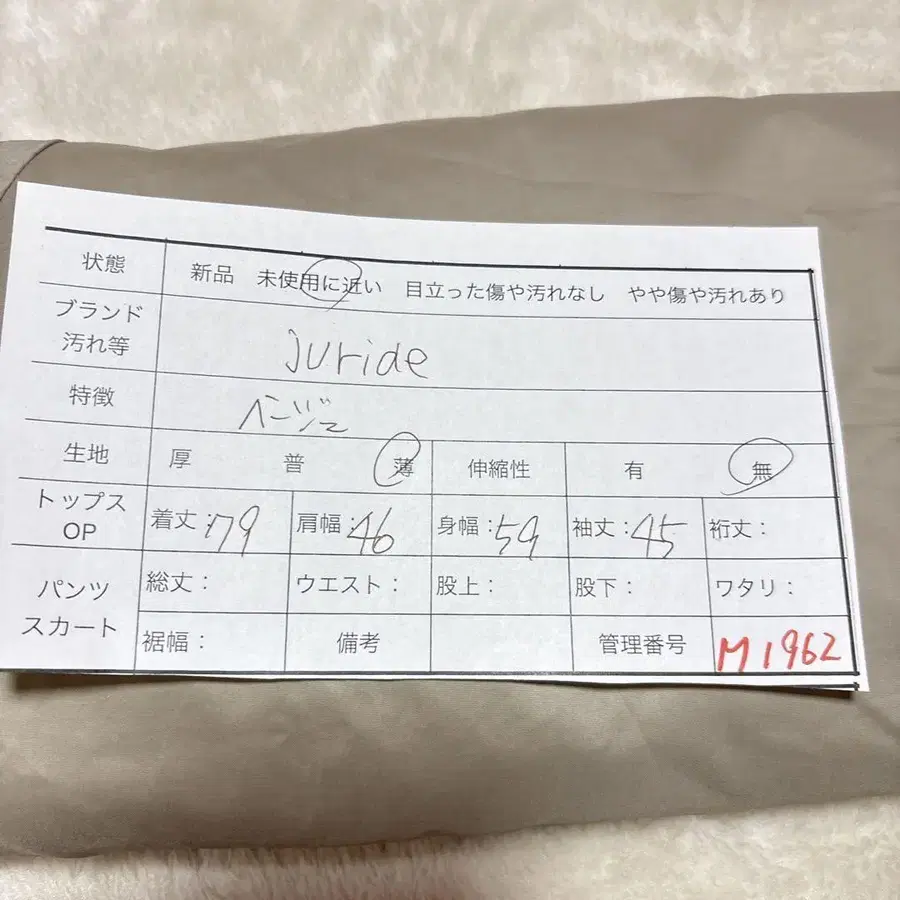 状態 新品 未使用に近い 目立った傷や汚れなし やや傷や汚れあり
ブランド
汚れ等 Juride
特徴 ベージュ
生地 厚 普 薄 伸縮性 有 無
トップス
OP 着丈:79 肩幅:46 身幅:59 袖丈:45 裄丈:
パンツ
スカート
総丈: ウエスト: 股上: 股下: ワタリ:
裾幅: 備考 管理番号 M1962